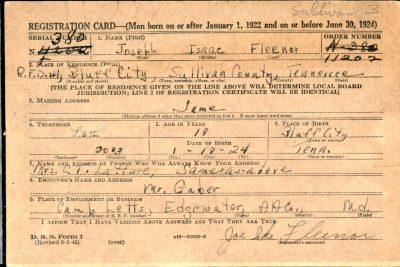 Sullivan
REGISTRATION CARD—(Men born on or after January 1, 1922 and on or before June 30, 1924)
SERIAL NUMBER 1. NAME (Print) ORDER NUMBER
380 Joseph Isaac Fleenor N-380
N-11202 11202
(First) (Middle) (Last)
2. PLACE OF RESIDENCE (Print)
R.F.D.#1, Bluff City, Sullivan County, Tennessee
(THE PLACE OF RESIDENCE GIVEN ON THE LINE ABOVE WILL DETERMINE LOCAL BOARD
JURISDICTION; LINE 2 OF REGISTRATION CERTIFICATE WILL BE IDENTICAL)
3. MAILING ADDRESS
Same
(Mailing address if other than place indicated on line 2. If same insert word same)
4. TELEPHONE 5. AGE IN YEARS 6. PLACE OF BIRTH
18 Bluff City
DATE OF BIRTH (Town or county)
1-18-24 Tenn.
(Exchange) (Number) (Mo.) (Day) (Yr.) (State or country)
7. NAME AND ADDRESS OF PERSON WHO WILL ALWAYS KNOW YOUR ADDRESS
Mrs. Same as above
8. EMPLOYER'S NAME AND ADDRESS
Mr. Gaber
9. PLACE OF EMPLOYMENT OR BUSINESS
Camp Letts, Edgewater, A.A.Co., Md.
(Number and street or R. F. D. number) (Town) (County) (State)
I AFFIRM THAT I HAVE VERIFIED ABOVE ANSWERS AND THAT THEY ARE TRUE.
D. S. S. Form 1
(Revised 6-1-42) (over) Joe Ike Fleenor
(Registrant's signature)